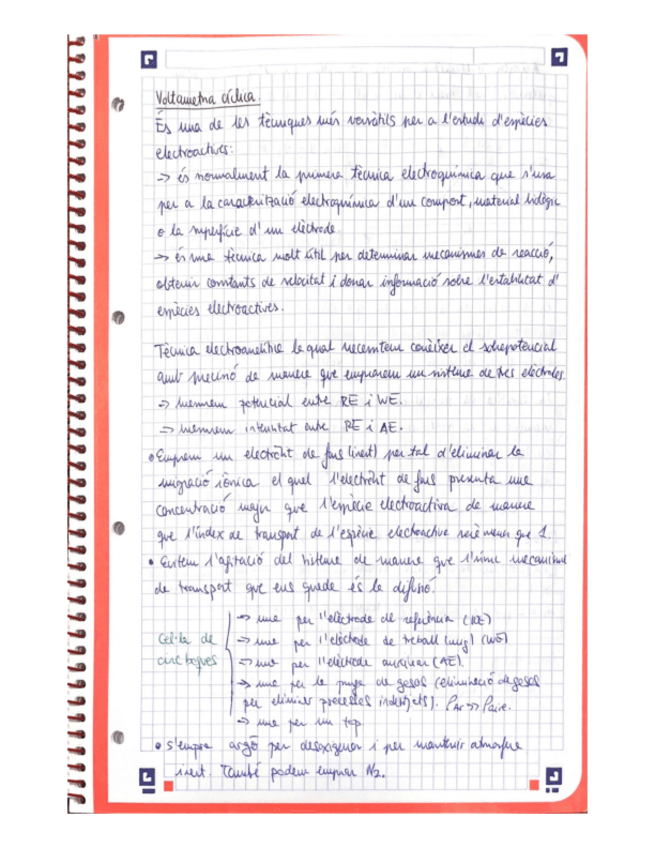 Voltametria cíclica
És una de les tècniques més versàtils per a l'estudi d'espècies
electroactives:
-> és normalment la primera tècnica electroquímica que s'usa
per a la caracterització electroquímica d'un compost, material biològic
o la superfície d'un elèctrode.
-> és una tècnica molt útil per determinar mecanismes de reacció,
obtenir constants de velocitat i donar informació sobre l'estabilitat d'
espècies electroactives.
Tècnica electroanalítica la qual necessitem conèixer el sobrepotencial
amb precisió de manera que emprarem un sistema de tres elèctrodes.
-> Mesurem potencial entre RE i WE.
-> Mesurem intensitat entre RE i AE.
• Emprem un electròlit de fons (inert) per tal d'eliminar la
migració iònica el qual l'electròlit de fons presenta una
concentració major que l'espècie electroactiva de manera
que l'índex de transport de l'espècie electroactiva serà menor que 1.
• Evitem l'agitació del sistema de manera que l'únic mecanisme
de transport que ens queda és la difusió.
Cel·la de
cinc boques
-> una per l'elèctrode de referència (RE)
-> una per l'elèctrode de treball (WE)
-> una per l'elèctrode auxiliar (AE).
-> una per la purga de gasos (eliminació de gasos
per eliminar processos indesitjats). ρAr >> ρaire.
-> una per un tap
• S'empra argó per desoxigenar i per mantenir atmosfera
inert. També podem emprar N2.